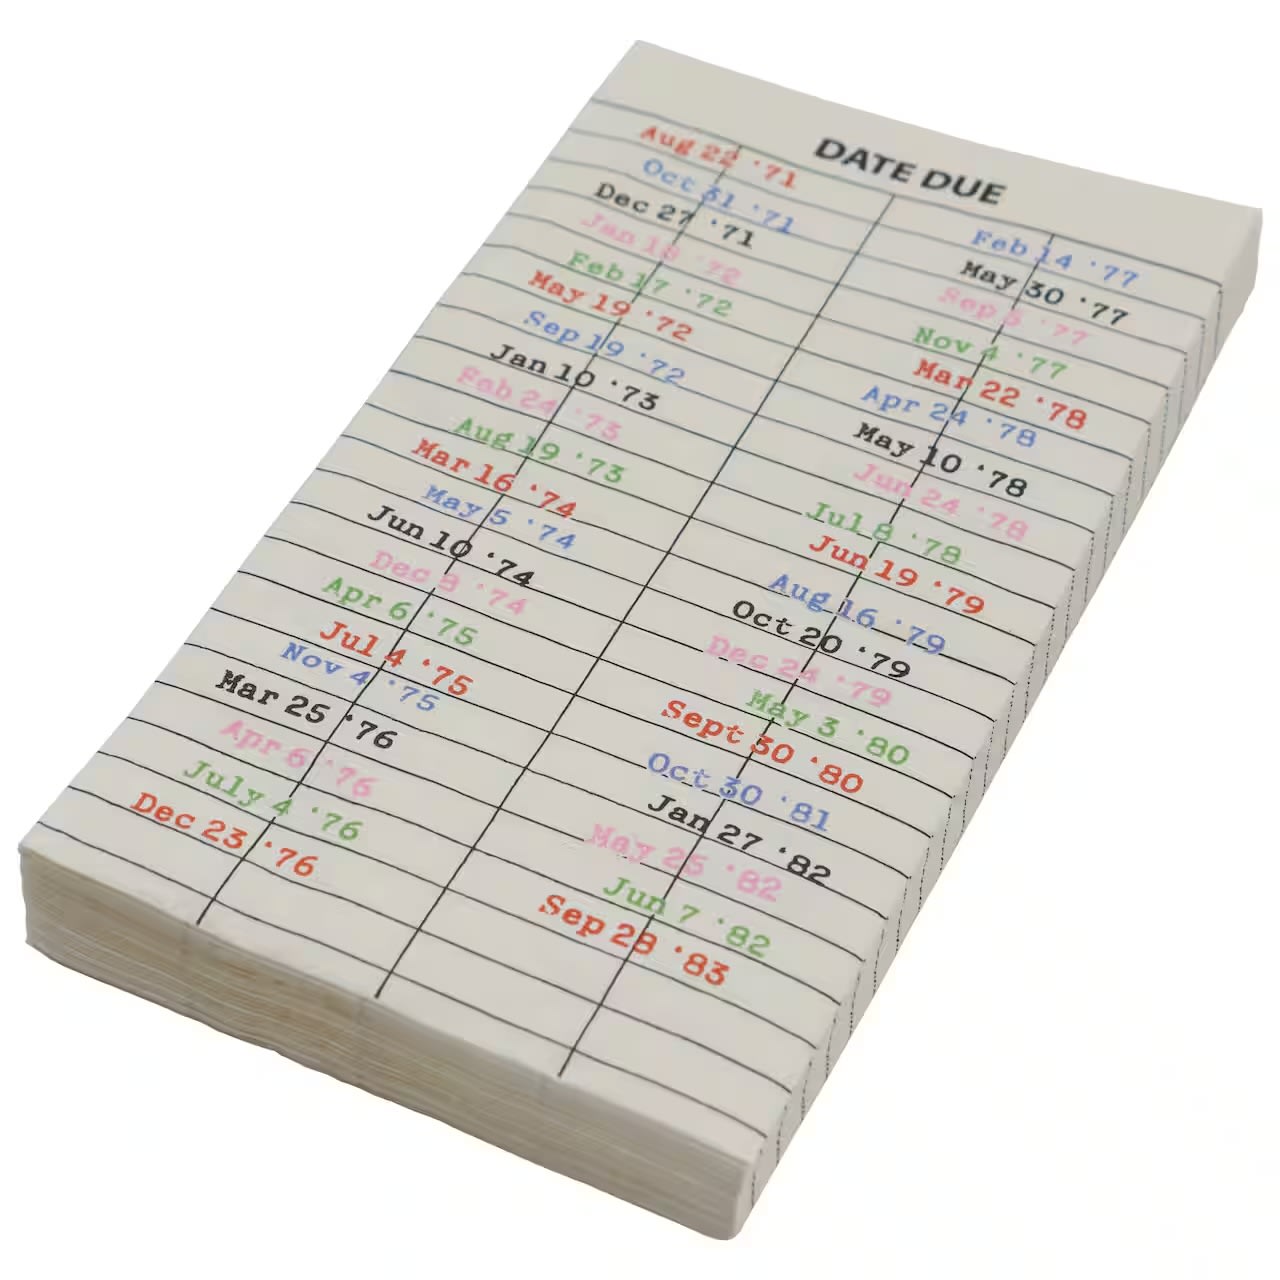 DATE DUE
Aug 22 '71
Oct 31 '71
Dec 27 '71
Jan 18 '72
Feb 17 '72
May 19 '72
Sep 19 '72
Jan 10 '73
Feb 24 '73
Aug 19 '73
Mar 16 '74
May 5 '74
Jun 10 '74
Dec 8 '74
Apr 6 '75
Jul 4 '75
Nov 4 '75
Mar 25 '76
Apr 6 '76
July 4 '76
Dec 23 '76
Feb 14 '77
May 30 '77
Sep 5 '77
Nov 4 '77
Mar 22 '78
Apr 24 '78
May 10 '78
Jun 24 '78
Jul 8 '78
Jun 19 '79
Aug 16 '79
Oct 20 '79
Dec 24 '79
May 3 '80
Sept 30 '80
Oct 30 '81
Jan 27 '82
May 25 '82
Jun 7 '82
Sep 28 '83